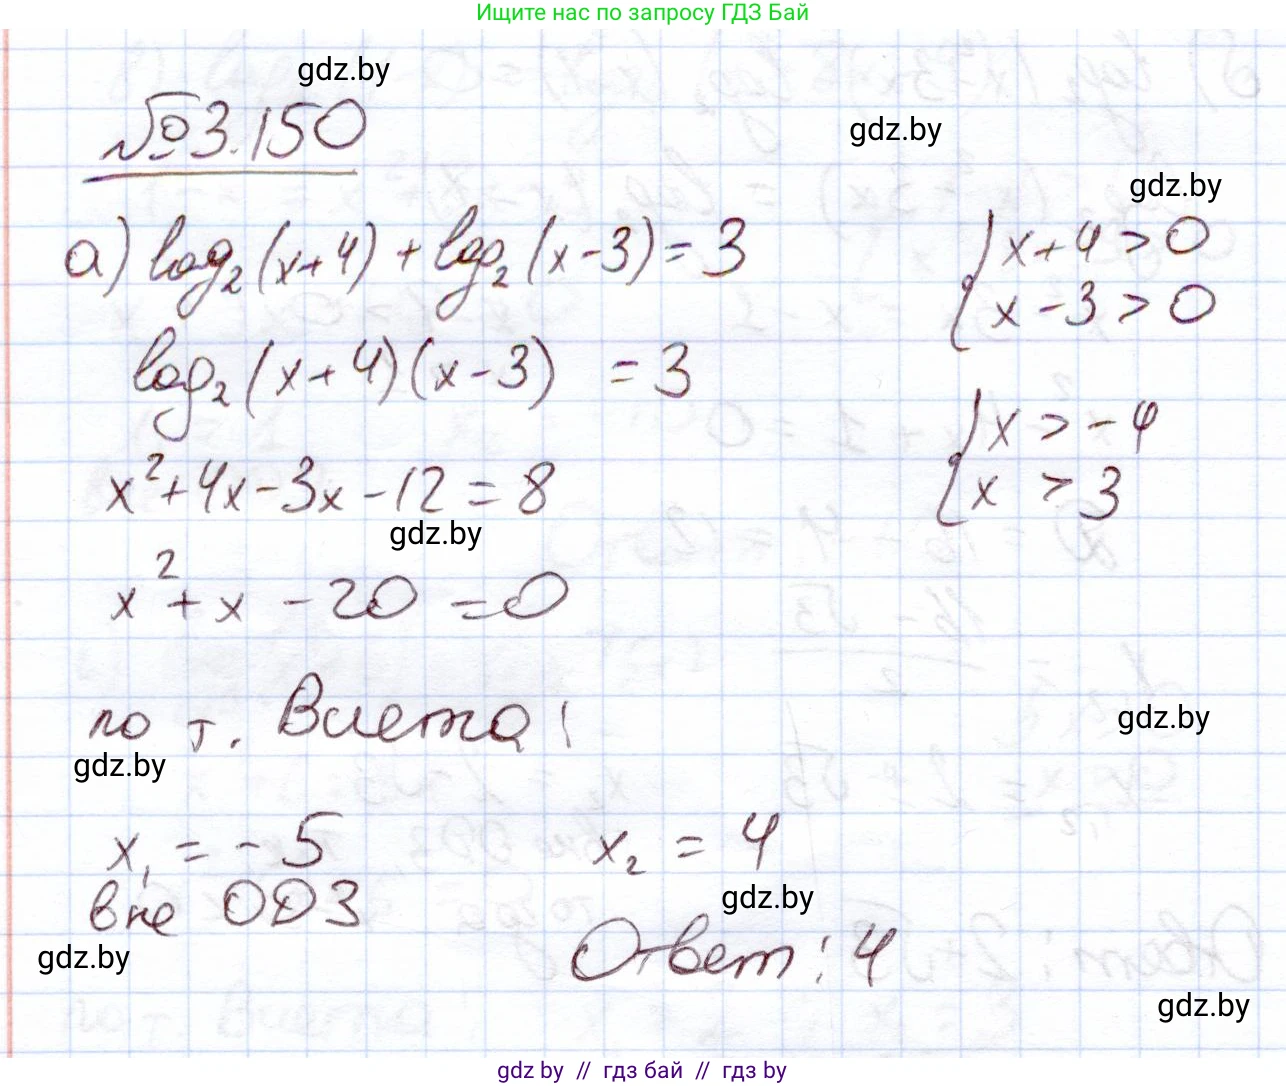 Ищите нас по запросу ГДЗ Бай
gdz.by
№3.150
gdz.by
gdz.by
а) log₂(x+4) + log₂(x-3) = 3
{ x+4 > 0
x-3 > 0
log₂(x+4)(x-3) = 3
{ x > -4
x > 3
x²+4x-3x-12=8
gdz.by
x²+x-20=0
по т. Виета:
gdz.by
gdz.by
x₁ = -5
x₂ = 4
вне ОДЗ
gdz.by
Ответ: 4
gdz.by
gdz.by
gdz by // гдз бай // гдз by